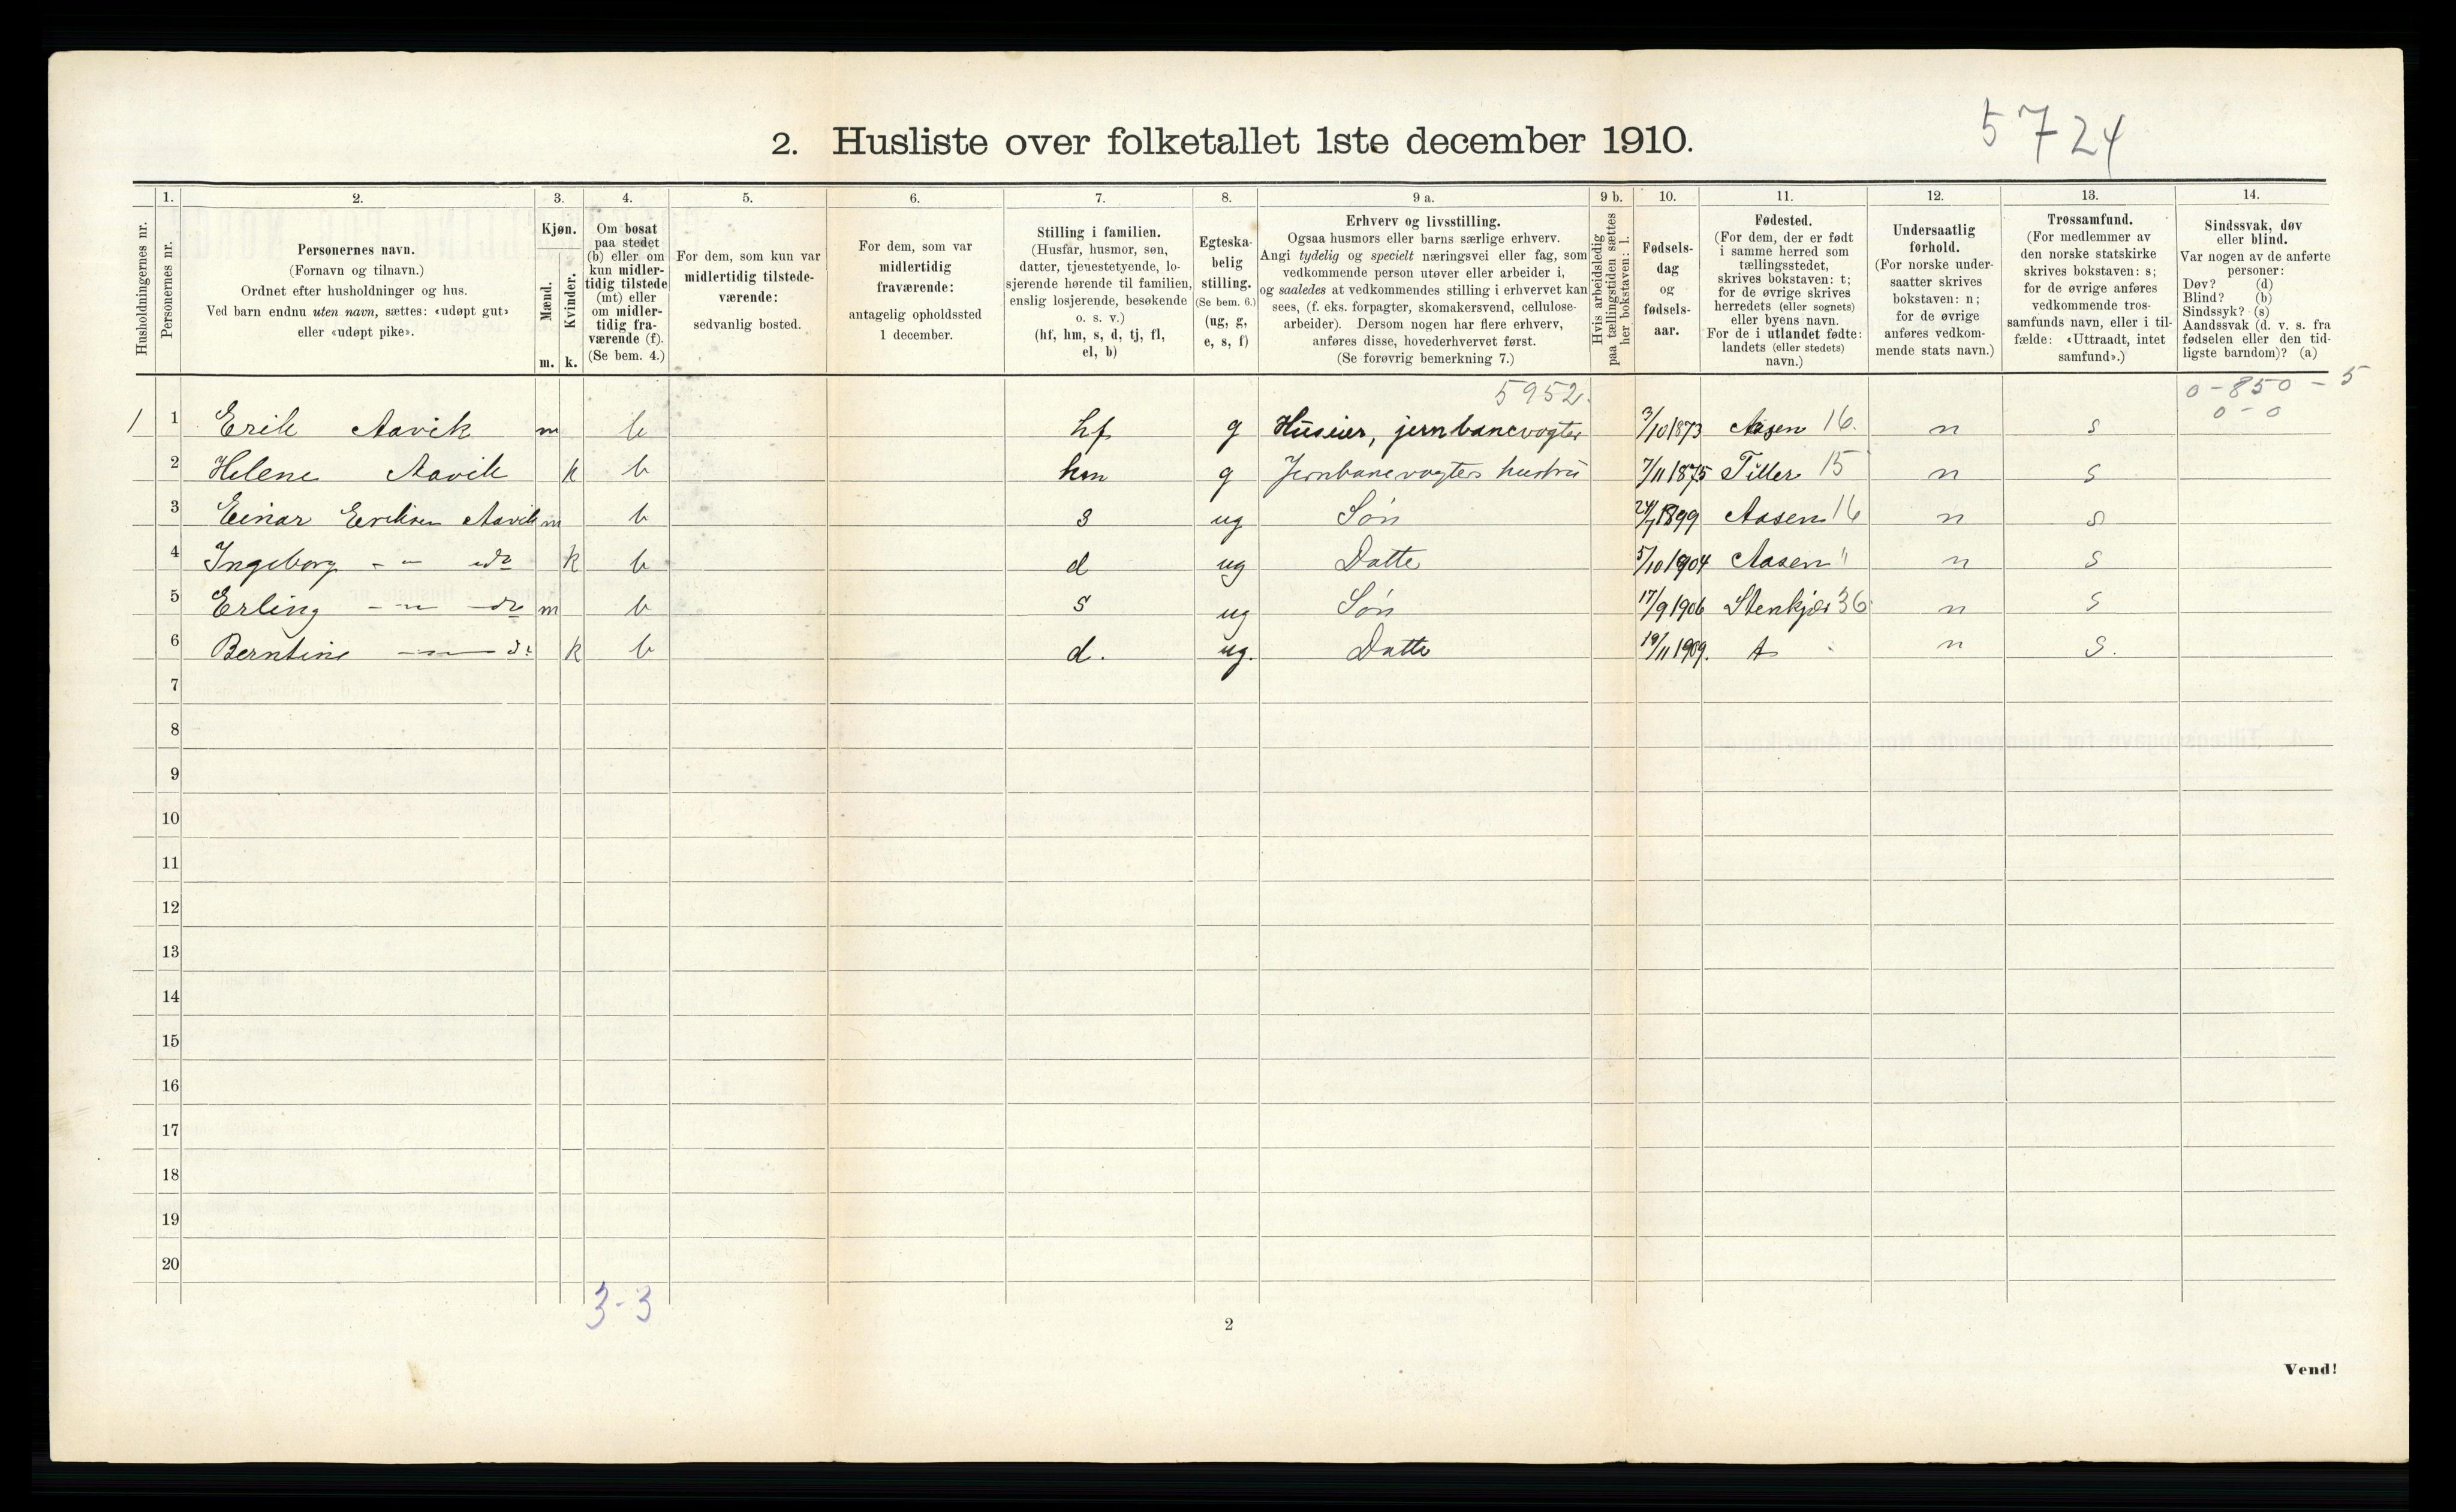 5724
2. Husliste over folketallet 1ste december 1910.
Husholdningernes nr.
1.
Personernes nr.
2.
Personernes navn.
(Fornavn og tilnavn.)
Ordnet efter husholdninger og hus.
Ved barn endnu uten navn, sættes: «udøpt gut»
eller «udøpt pike».
3.
Kjøn.
Mænd.
Kvinder.
m. k.
4.
Om bosat
paa stedet
(b) eller om
kun midler-
tidig tilstede
(mt) eller
om midler-
tidig fra-
værende (f).
(Se bem. 4.)
5.
For dem, som kun var
midlertidig tilstede-
værende:
sedvanlig bosted.
6.
For dem, som var
midlertidig
fraværende:
antagelig opholdssted
1 december.
7.
Stilling i familien.
(Husfar, husmor, søn,
datter, tjenestetyende, lo-
sjerende hørende til familien,
enslig losjerende, besøkende
o. s. v.)
(hf, hm, s, d, tj, fl,
el, b)
8.
Egteska-
belig
stilling.
(Se bem. 6.)
(ug, g,
e, s, f)
9 a.
Erhverv og livsstilling.
Ogsaa husmors eller barns særlige erhverv.
Angi tydelig og specielt næringsvei eller fag, som
vedkommende person utøver eller arbeider i,
og saaledes at vedkommendes stilling i erhvervet kan
sees, (f. eks. forpagter, skomakersvend, cellulose-
arbeider). Dersom nogen har flere erhverv,
anføres disse, hovederhvervet først.
(Se forøvrig bemerkning 7.)
9 b.
Hvis arbeidsledig
paa tællingstiden sættes
her bokstaven: l.
10.
Fødsels-
dag
og
fødsels-
aar.
11.
Fødested.
(For dem, der er født
i samme herred som
tællingsstedet,
skrives bokstaven: t;
for de øvrige skrives
herredets (eller sognets)
eller byens navn.
For de i utlandet fødte:
landets (eller stedets)
navn.)
12.
Undersaatlig
forhold.
(For norske under-
saatter skrives
bokstaven: n;
for de øvrige
anføres vedkom-
mende stats navn.)
13.
Trossamfund.
(For medlemmer av
den norske statskirke
skrives bokstaven: s;
for de øvrige anføres
vedkommende tros-
samfunds navn, eller i til-
fælde: «Uttraadt, intet
samfund».)
14.
Sindssvak, døv
eller blind.
Var nogen av de anførte
personer:
Døv? (d)
Blind? (b)
Sindssyk? (s)
Aandssvak (d. v. s. fra
fødselen eller den tid-
ligste barndom)? (a)
5952. 0-850-5
0-0
1 1 Erik Aavik m b hf g Huseier, jernbanevogter 3/10 1873 Aasen 16. n s
2 Helene Aavik k b hm g Jernbanevogters hustru 7/11 1875 Tiller 15 n s
3 Einar Eriksen Aavik m b s ug Søn 24/7 1899 Aasen 16 n s
4 Ingeborg - " - do k b d ug Datte 5/10 1904 Aasen " n s
5 Erling - " - do m b s ug Søn 17/9 1906 Stenkjær 36 n s
6 Berntine - " - do k b d. ug. Datte 19/11 1909. t n s.
7
8
9
10
11
12
13
14
15
16
17
18
19
20
3-3
2
Vend!